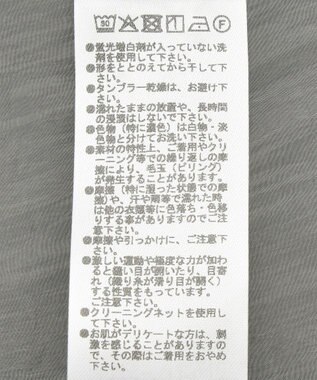 蛍光増白剤が入っていない洗
剤を使用して下さい。
形をととのえてから干して下
さい。
タンブラー乾燥は、お避け下
さい。
濡れたままの放置や、長時間
の浸漬はしないで下さい。
色物(特に濃色)は白物・淡
色物と分けてお洗い下さい。
素材の特性上、ご着用やクリ
ーニング等での繰り返しの摩
擦により、毛玉(ピリング)
が発生することがあります。
摩擦(特に湿った状態での摩
擦)や、汗や雨等で濡れた時
は他の衣類等に色落ち・色移
りする事がありますのでご注
意下さい。
摩擦や引っかけに、ご注意下
さい。
激しい運動や極度な力が加わ
ると縫い目が開いたり、目寄
れ(織り糸が滑り目が開く)
する性質をもっています。
ご注意下さい。
クリーニングネットを使用し
て下さい。
お肌がデリケートな方は、刺
激を感じることがありますの
で、その際はご着用をおやめ
下さい。